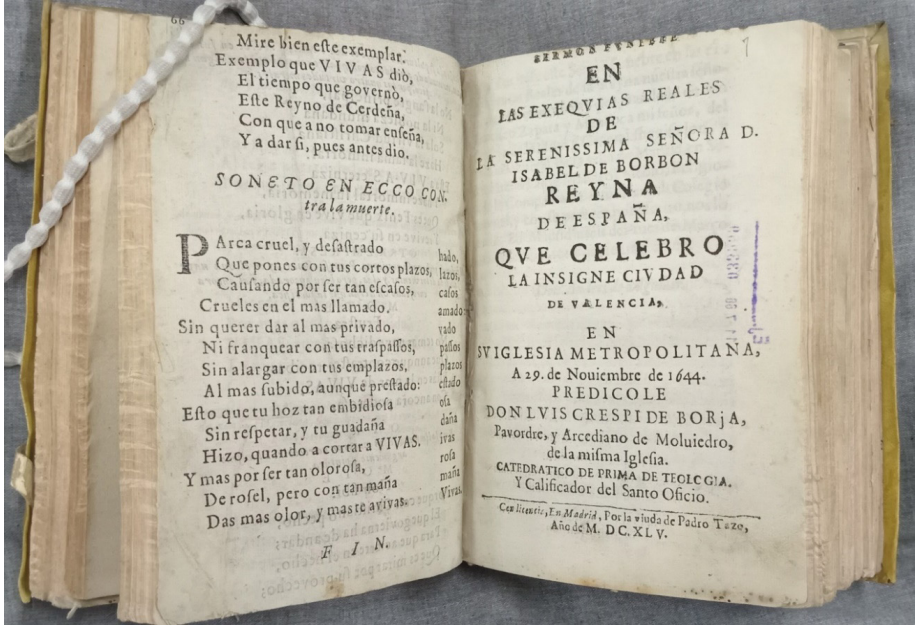 66
Mire bien eſte exemplar.
Exemplo que VIVAS diò,
El tiempo que governò,
Eſte Reyno de Cerdeña,
Con que a no tomar enſeña,
Y a dar ſi, pues antes dio.
SONETO EN ECCO CON-
tra la muerte.
PArca cruel, y deſaſtrado hado,
Que pones con tus cortos plazos, lazos,
Cauſando por ſer tan eſcaſos, caſos
Crueles en el mas llamado. amado
Sin querer dar al mas privado, vado
Ni franquear con tus traſpaſſos, paſſos
Sin alargar con tus emplazos, plazos
Al mas ſubido, aunque preſtado: eſtado
Eſto que tu hoz tan embidioſa oſa
Sin reſpetar, y tu guadaña daña
Hizo, quando a cortar a VIVAS. ivas
Y mas por ſer tan oloroſa, roſa
De roſel, pero con tan maña maña
Das mas olor, y mas te avivas. Vivas.
F I N.
SERMON FVNEBRE
EN
LAS EXEQVIAS REALES
DE
LA SERENISSIMA SEÑORA D.
ISABEL DE BORBON
REYNA
DE ESPAÑA,
QVE CELEBRO
LA INSIGNE CIVDAD
DE VALENCIA,
EN
SV IGLESIA METROPOLITANA,
A 29. de Nouiembre de 1644.
PREDICOLE
DON LVIS CRESPI DE BORjA,
Pavordre, y Arcediano de Moluiedro,
de la miſma Igleſia.
CATEDRATICO DE PRIMA DE TEOLOGIA.
Y Calificador del Santo Oficio.
Con licencia, En Madrid, Por la viuda de Padro Tazo,
Año de M. DC. XLV.